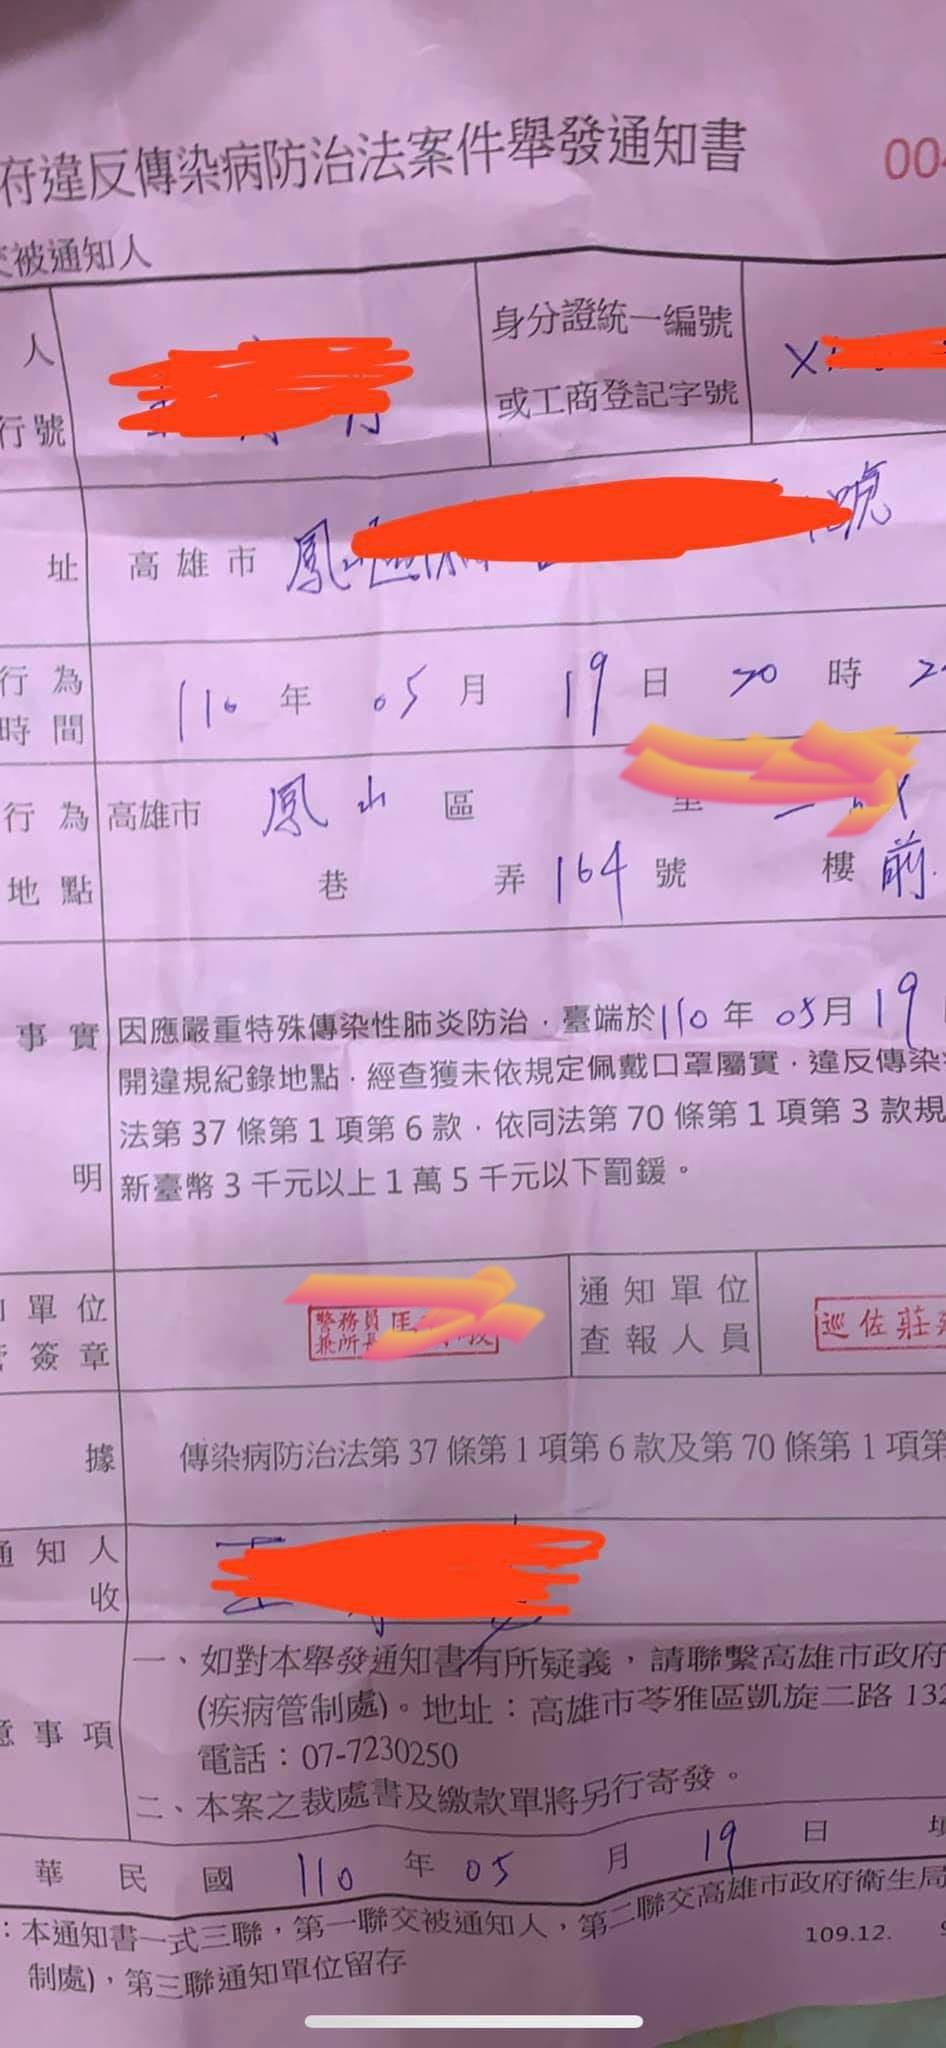 府違反傳染病防治法案件舉發通知書 00
交被通知人
人
行號
身分證統一編號
或工商登記字號
X
址 高雄市 鳳山區 號
行為
時間
110 年 05 月 19 日 20 時
行為
地點
高雄市 鳳山 區 里
巷 弄 164 號 樓 前
事實 因應嚴重特殊傳染性肺炎防治，臺端於110年05月19
開違規紀錄地點，經查獲未依規定佩戴口罩屬實，違反傳染
法第37條第1項第6款，依同法第70條第1項第3款規
明 新臺幣3千元以上1萬5千元以下罰鍰。
單位
簽章
警務員
兼所長
通知單位
查報人員
巡佐莊
據 傳染病防治法第37條第1項第6款及第70條第1項第
通知人
收
意事項
一、如對本舉發通知書有所疑義，請聯繫高雄市政府
(疾病管制處)。地址：高雄市苓雅區凱旋二路132
電話：07-7230250
二、本案之裁處書及繳款單將另行寄發。
華民國 110 年 05 月 19 日 填
：本通知書一式三聯，第一聯交被通知人，第二聯交高雄市政府衛生局
制處)，第三聯通知單位留存
109.12.